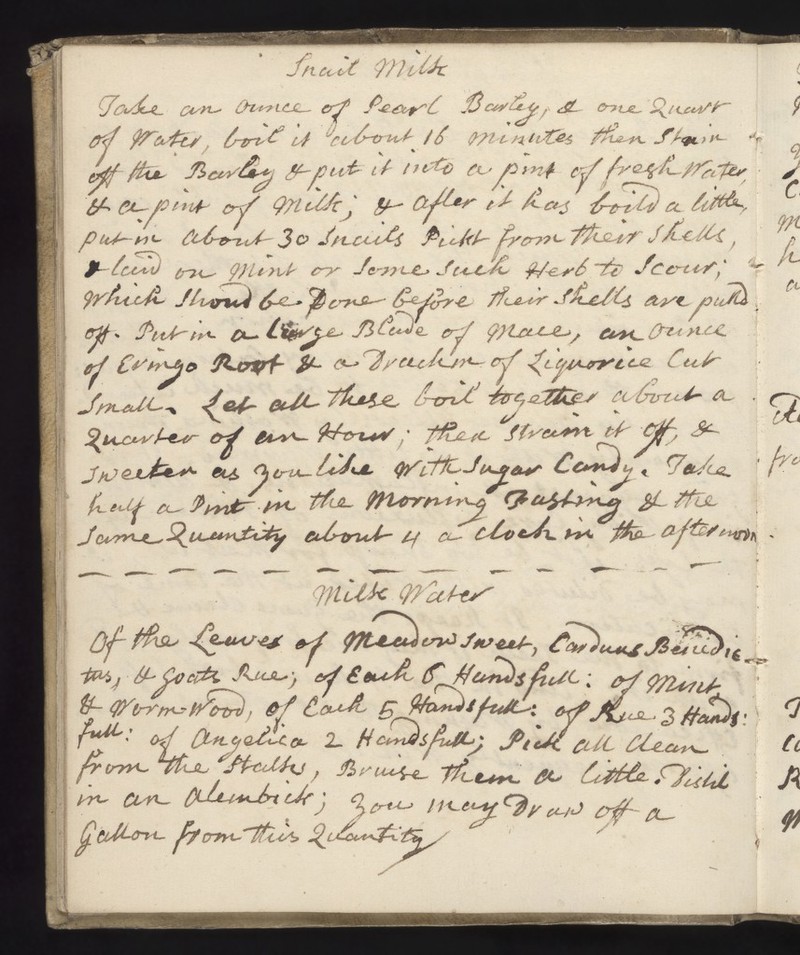 Snail Milk
Take an ounce of Pearl Barley, & one Quart
of Water, boil it about 16 minutes then Strain
off the Barley & put it into a pint of fresh Water,
& a pint of Milk; & after it has boild a little,
put in about 30 Snails Pickt from their Shells,
& laid on Mint or Some Such Herb to Scour;
which Shoud be Done before their Shells are pulld
off. Put in a large Blade of Mace, an ounce
of Eringo Root & a Drachm of Liquorice Cut
Small. Let all these boil together about a
Quarter of an Hour; then Strain it off, &
Sweeten as you like with Sugar Candy. Take
half a Pint in the Morning Fasting & the
Same Quantity about 4 a clock in the afternoon.
Milk Water
Of the Leaves of Meadow Sweet, Carduus Benedic
tus, & Goats Rue; of Each 6 Handsfull: of Mint
& Worm-Wood, of Each 5 Handsfull: of Rue 3 Hands:
full: of Angelica 2 Handsfull; Pick all Clean
from the Stalks, Bruise them a little. Distil
in an Alembick; you may Draw off a
Gallon from this Quantity